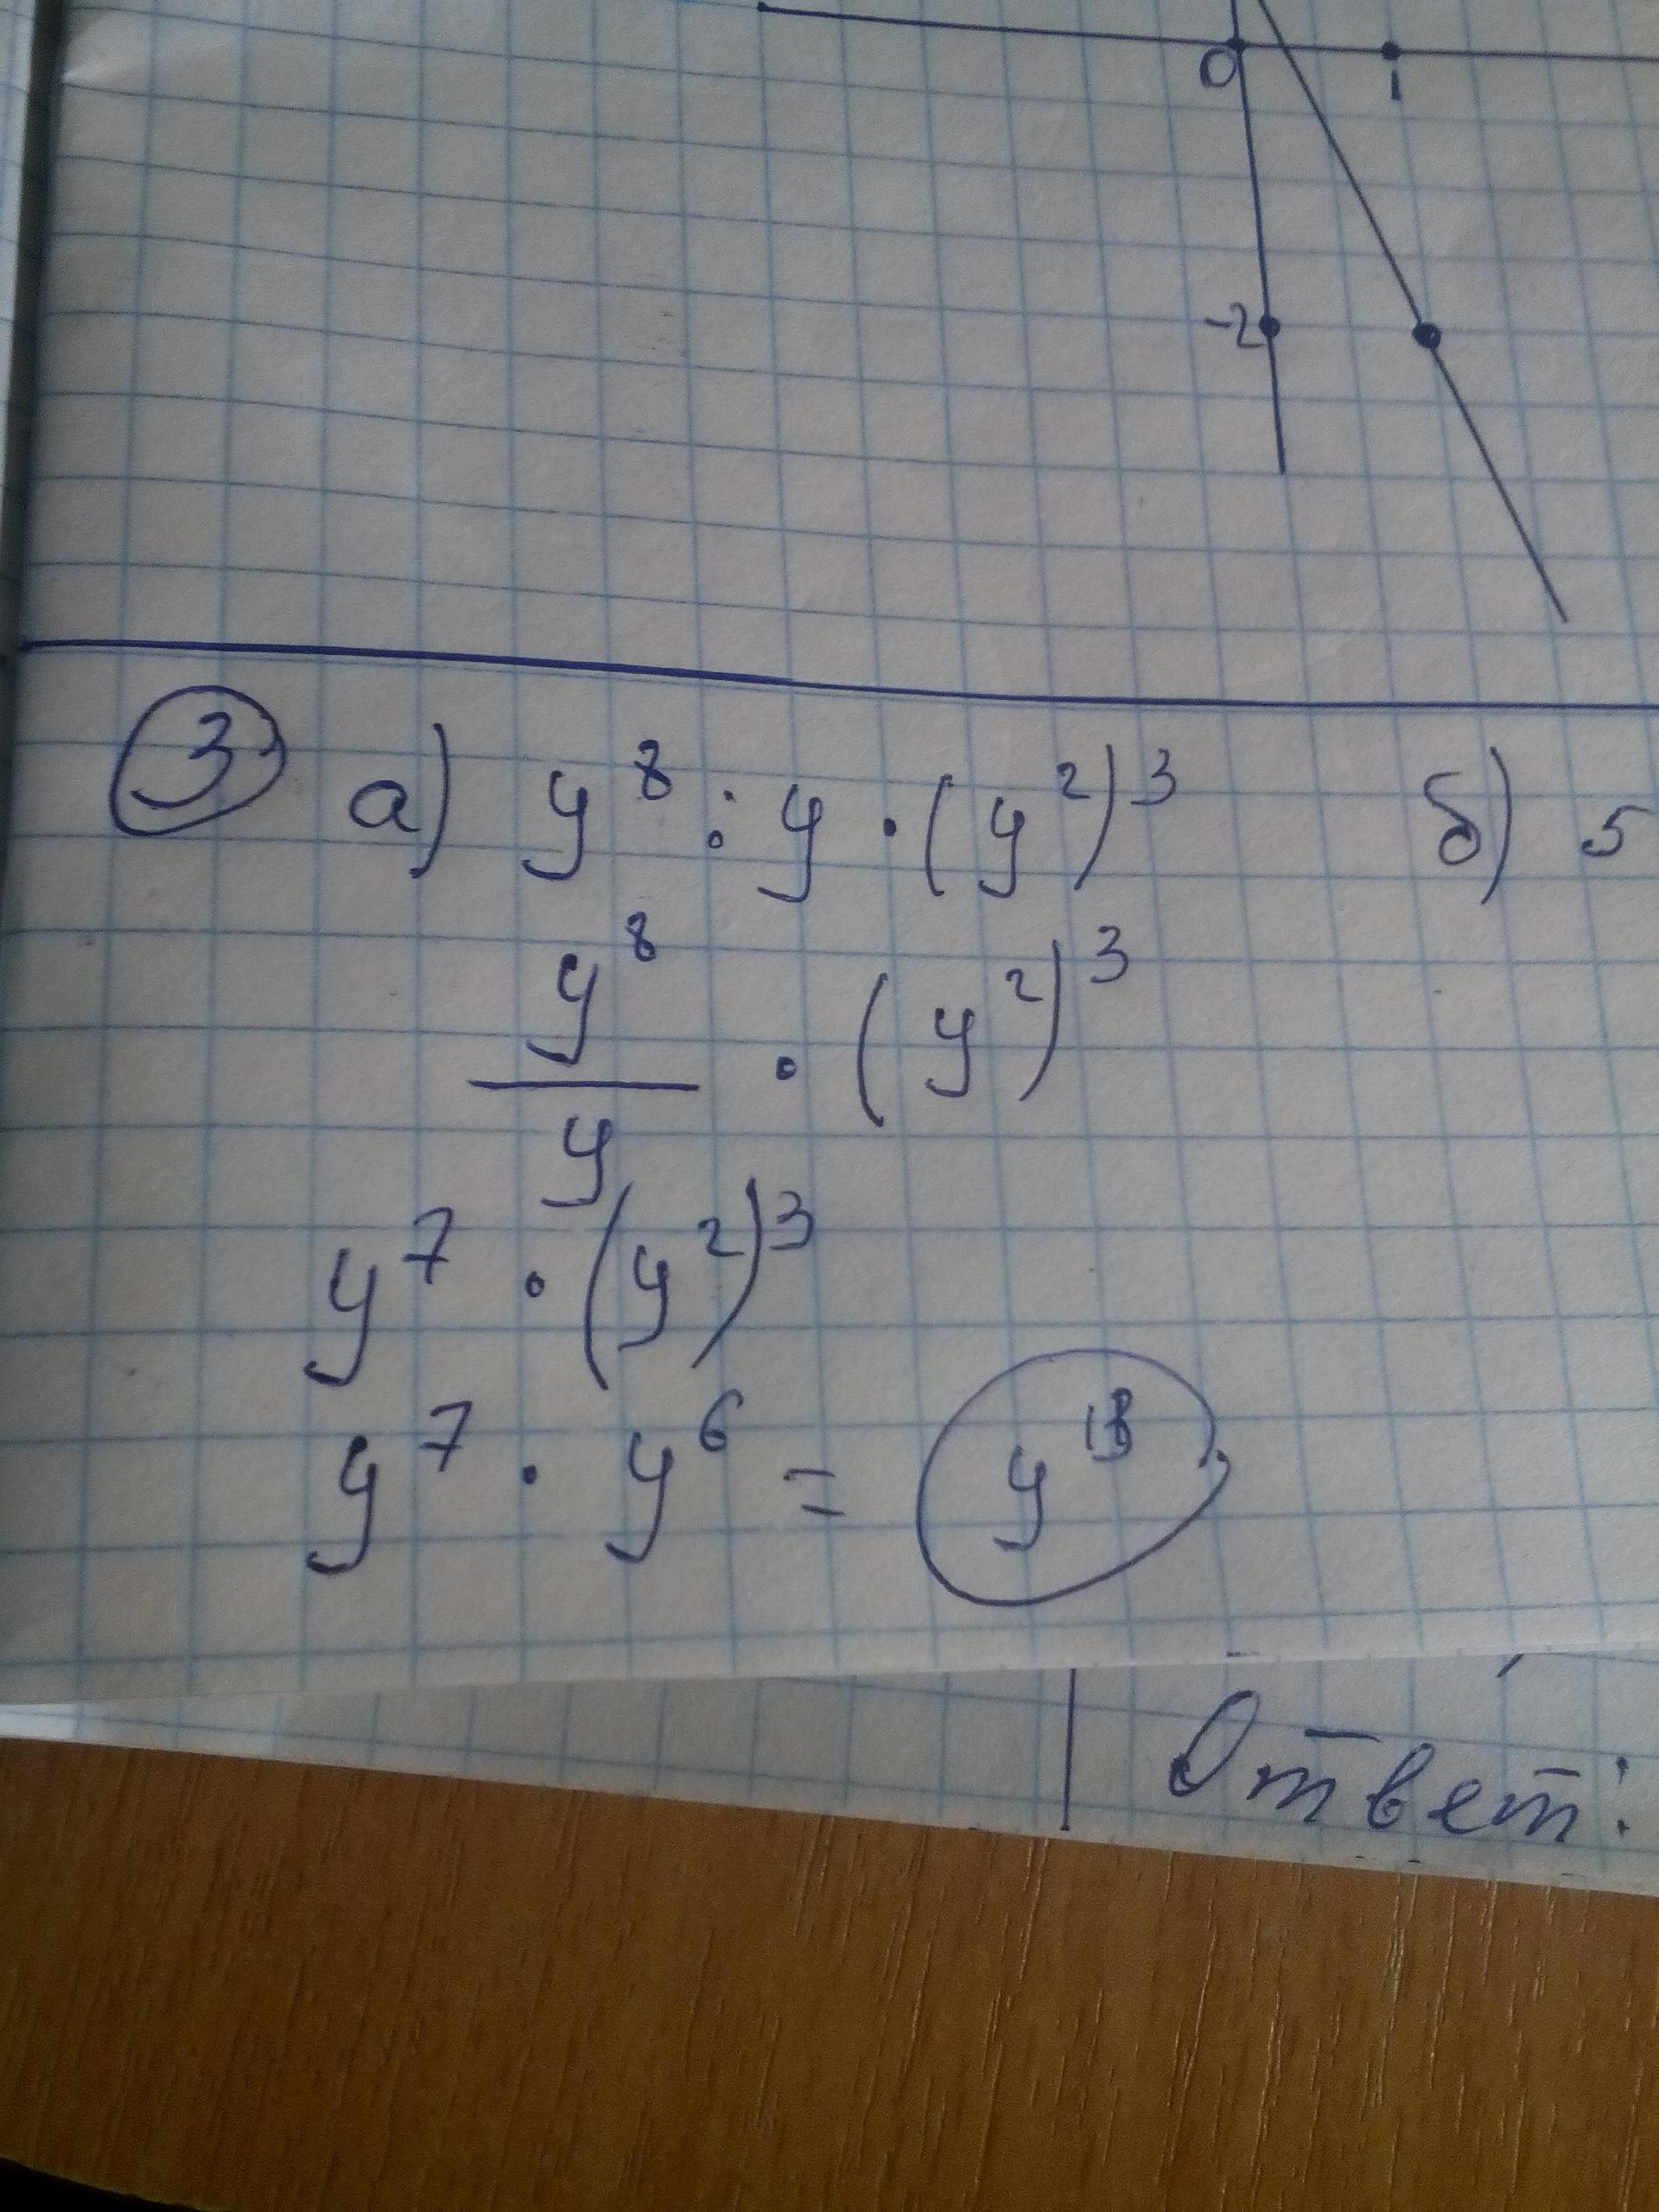 0 1
-2
3 а) y⁸ : y · (y²)³ б) 5
y⁸/y · (y²)³
y⁷ · (y²)³
y⁷ · y⁶ = y¹³
Ответ: